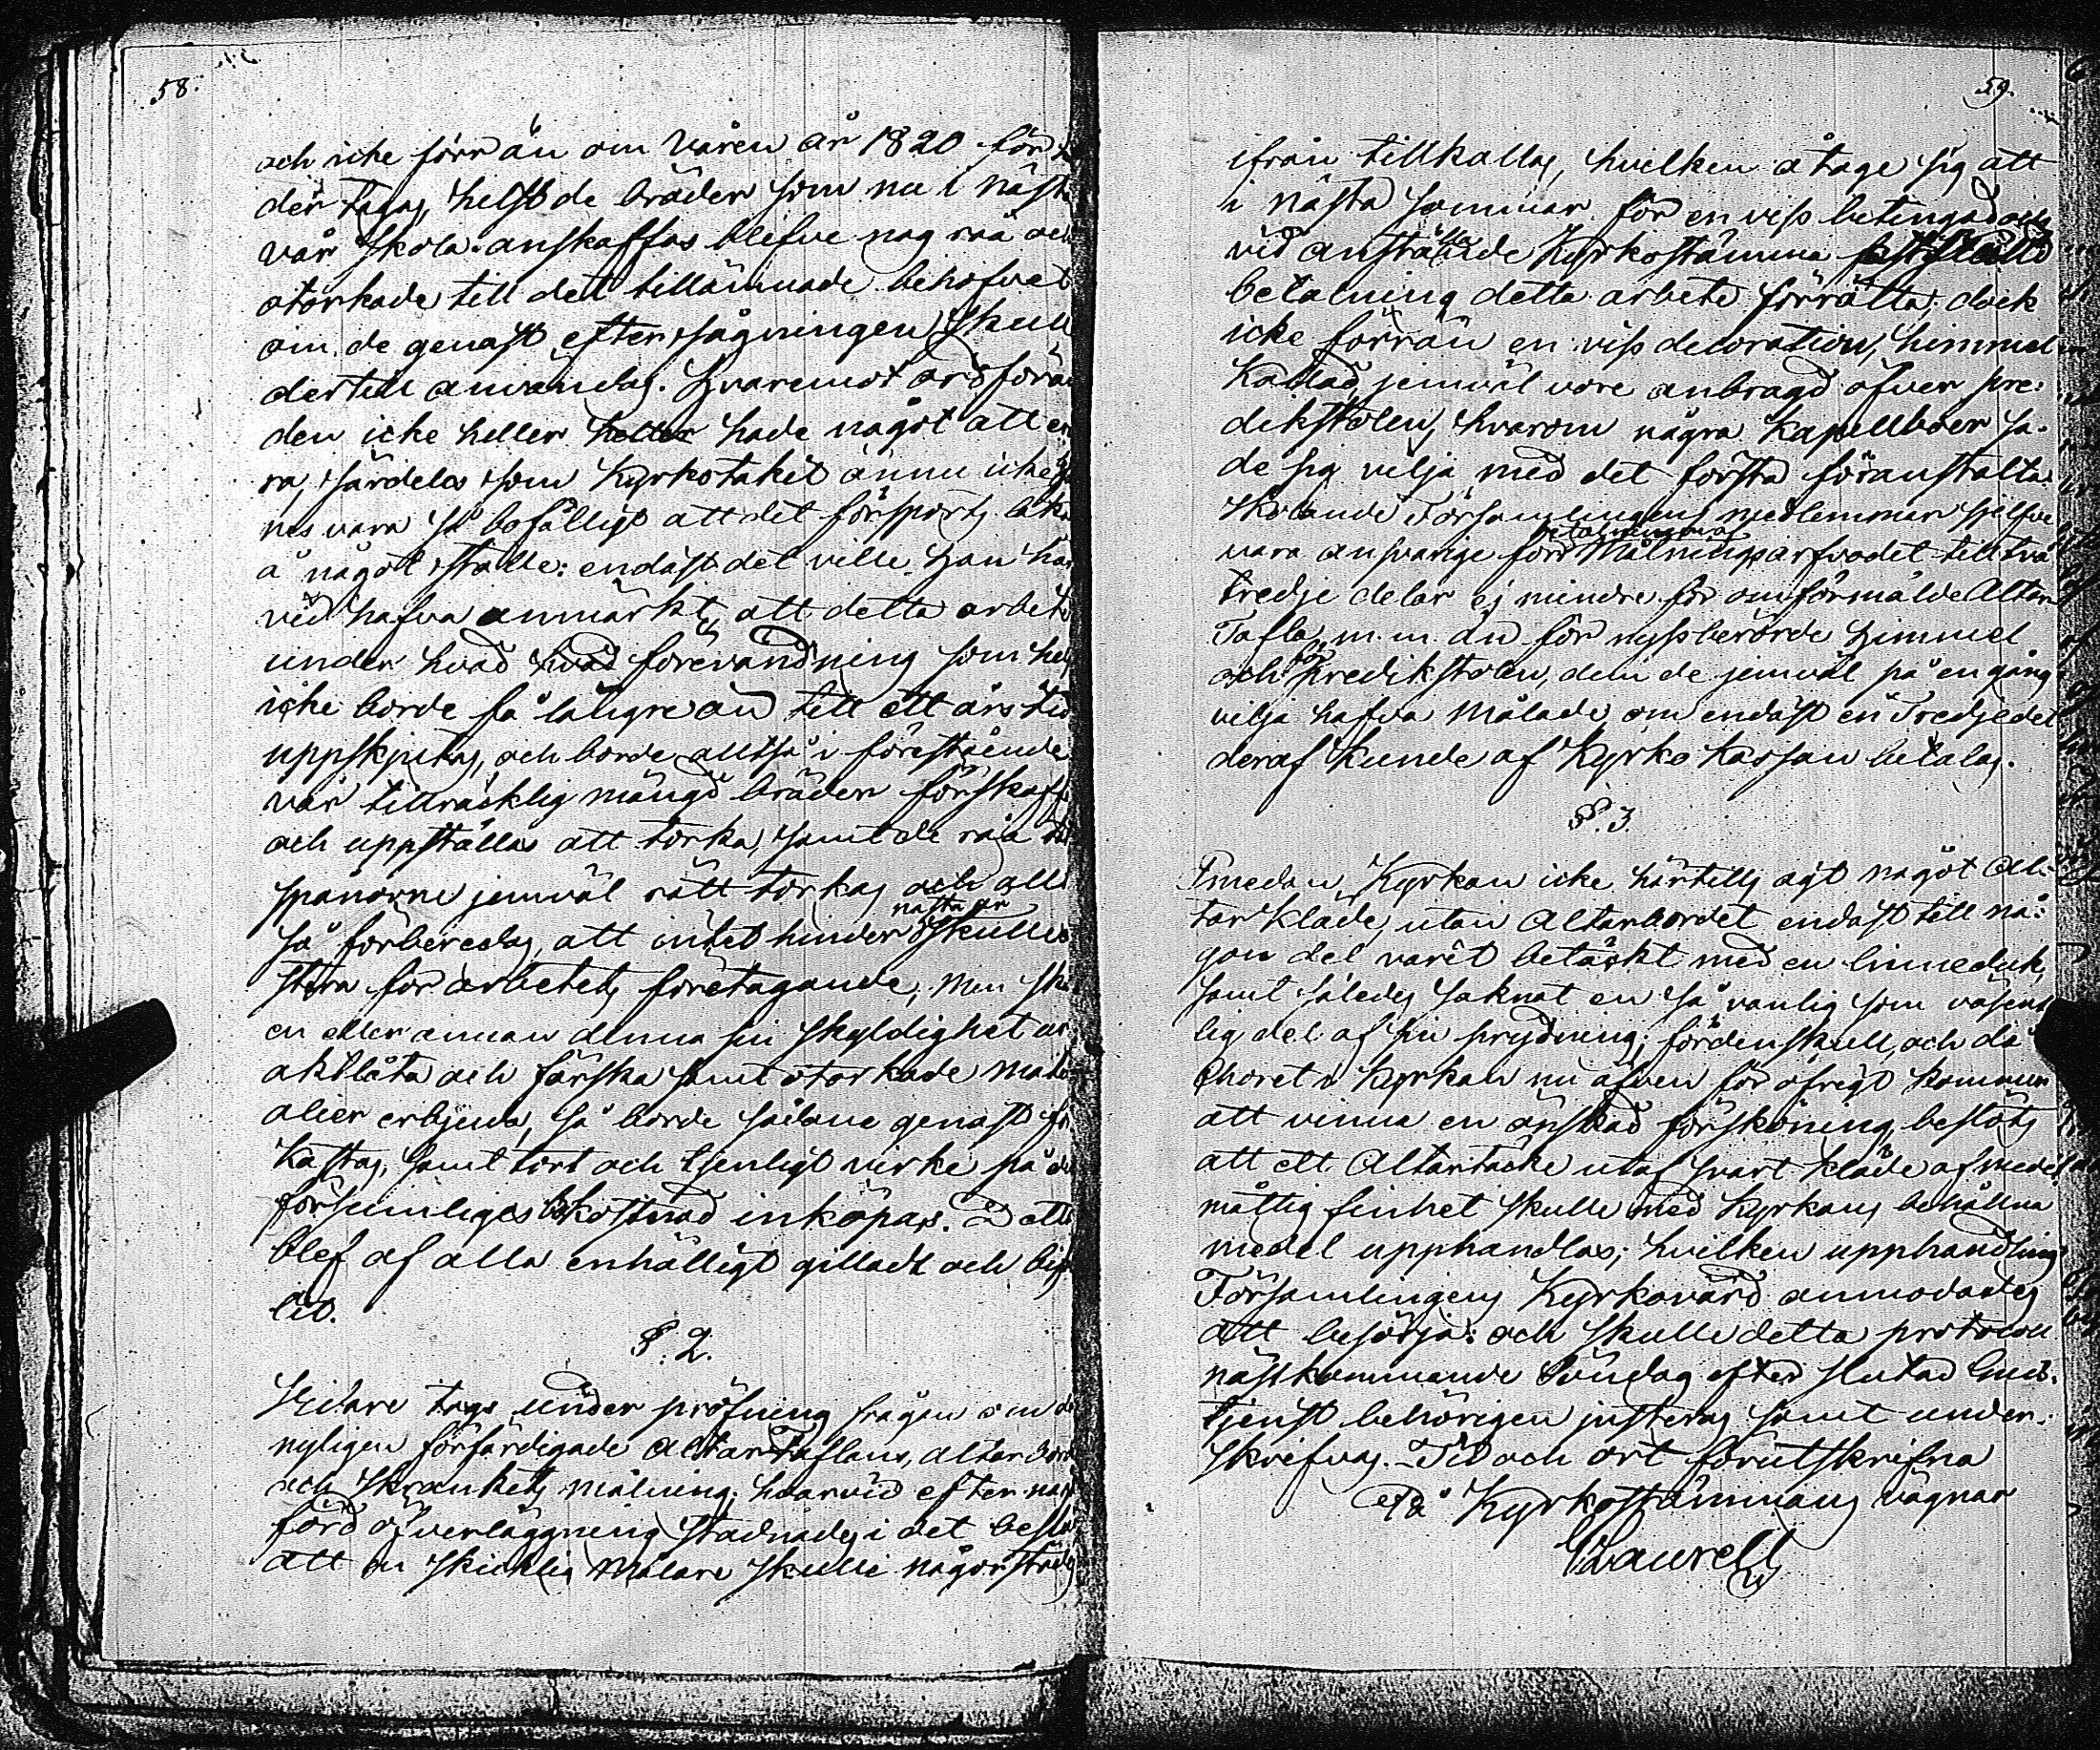 58.
och icke förr än om Våren år 1820 för
der tagas, helst de bräder som nu i näst
vår skola anskaffas blefve nog råa och
otorkade till det tillämnade behofvet
om de genast efter sågningen skull
dertill användas. Hvaremot ordföran
den icke heller heller hade något att er
ra, särdeles som Kyrkotaket ännu icke
nes vara så bofälligt att det försports läka
å något ställe: endast det ville Han här
vid hafva anmärkt, att detta arbete
under hvad hvad förevändning som hels
icke borde få längre än till ett års tid
uppskjutas, och borde alltså i förestående
vår tillräcklig mängd bräder förskaffa
och uppställas att torka, samt de råa
spånorne jemväl rätt torkas och allt
nästa år
så förberedas, att intet hinder skulle
störa för arbetets företagande; men sku
en eller annan denna sin skyldighet ur
aktlåta och färska samt otorkade mate
alier erbjuda, så borde sådane genast för
kastas, samt tort och tjenligt virke på de
försumliges bekostnad inköpas. Detta
blef af alla enhälligt gilladt och bifal
lit.
§. 2.
Vidare togs under pröfning frågan om de
nyligen förfärdigade Altar Taflans, altar bord
och Skrankets målning; hvarvid efter nog
förd öfverläggning stadnades i det beslut
att en skicklig Målare skulle någorstädes
59.
ifrån tillkallas, hvilken åtage sig att
i nästa sommar för en viss betingad och
vid anställande Kyrkostämma fastställd
betalning detta arbete förrätta; dock
icke förrän en viss decoration, himmel
kallad, jemväl vore anbragd öfver pre-
dikstolen, hvarom några Kapellboer sa-
de sig vilja med det första föranstalta.
Skolande Församlingens medlemmar sjelfve
betalningen af
vara ansvarige för Målningsarfvodet till två
tredje delar ej mindre för omförmälde Altar
Tafla m. m. än för nyssberörde Himmel
för
och Predikstolen, dem de jemväl på en gång
vilja hafva Målade, om endast en Tredjedel
deraf kunde af Kyrko Kassan betalas.
§. 3.
Emedan Kyrkan icke härtills ägt något Al-
tar kläde, utan Altarbordet endast till nå-
gon del varit betäckt med en linneduk,
samt således saknat en så vanlig som väsent
lig del af sin prydning; fördenskull, och då
Choret i Kyrkan nu äfven för öfrigt kommer
att vinna en önskad försköning, beslöts
att ett Altartäcke utaf svart kläde af medel
måttig finhet skulle med Kyrkans behållna
medel upphandlas; hvilken upphandling
Församlingens Kyrkovärd anmodades
att besörja: och skulle detta protocoll
nästkommande Söndag efter slutad Guds-
tjenst behörigen justeras samt under-
skrifvas. Tid och ort förutskrifna
På Kyrkostämmans vägnar
Laurell